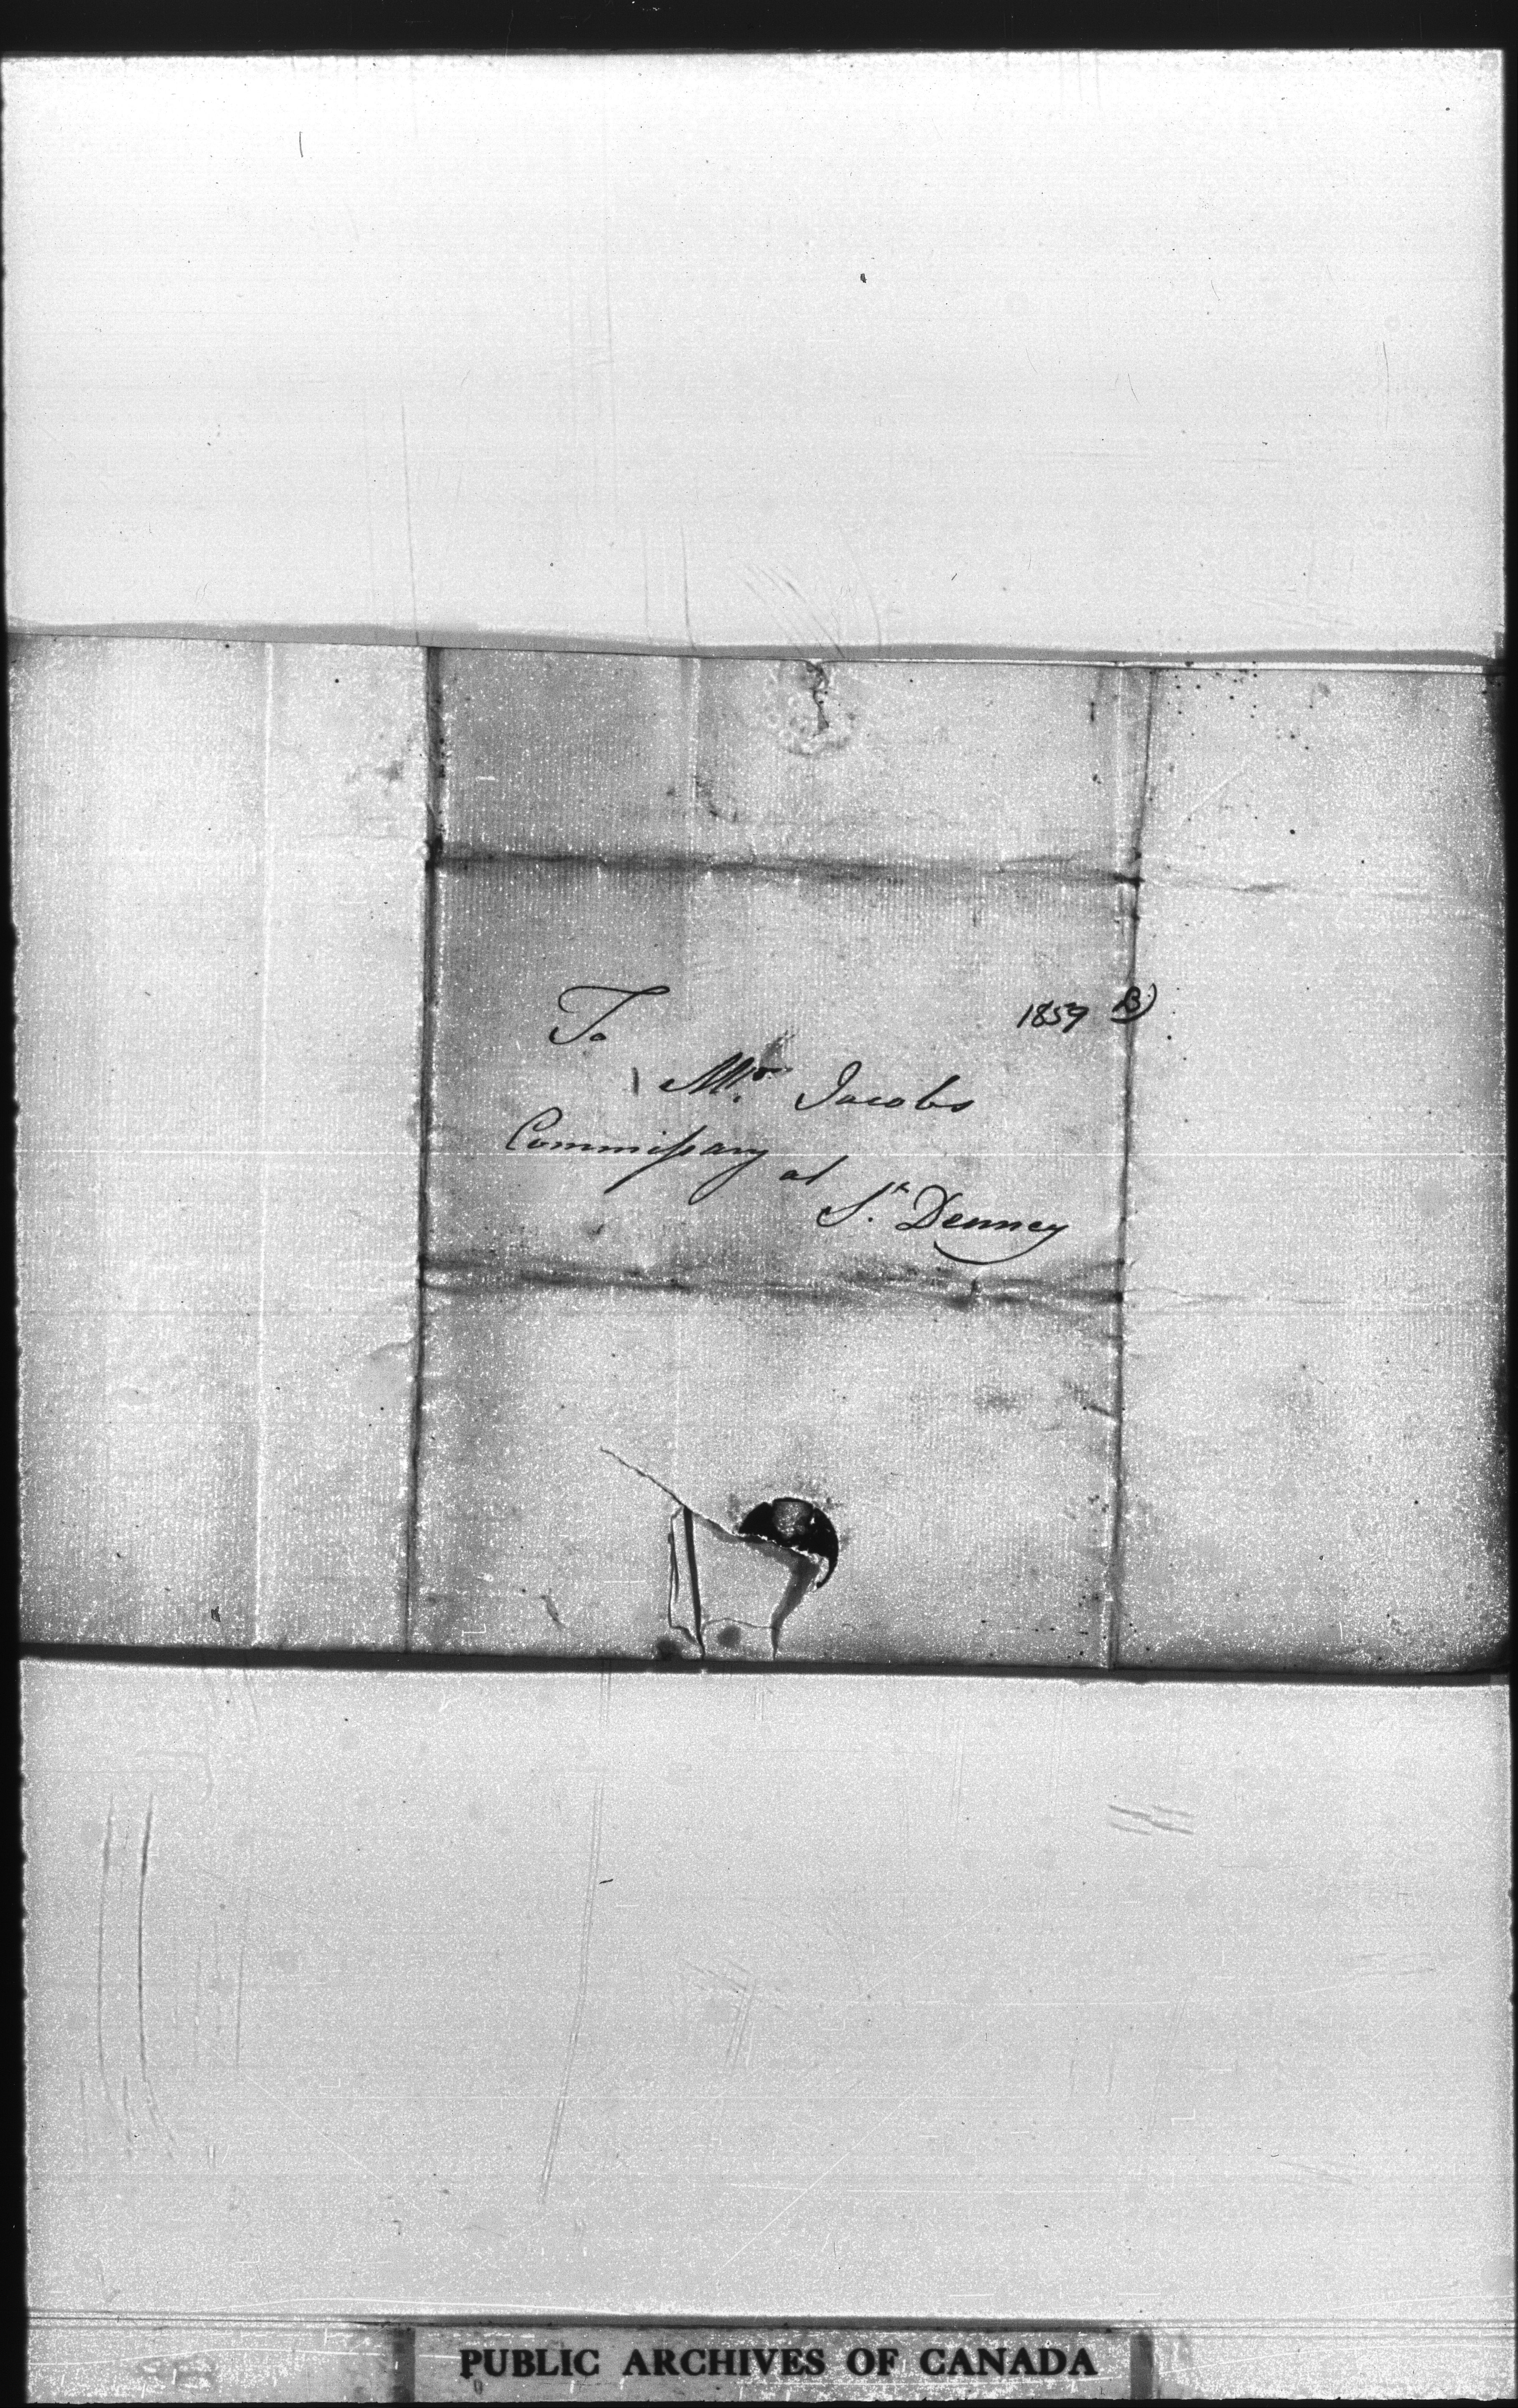 To
1859 B)
Mr. Jacobs
Commissary
at
St. Denney
PUBLIC ARCHIVES OF CANADA